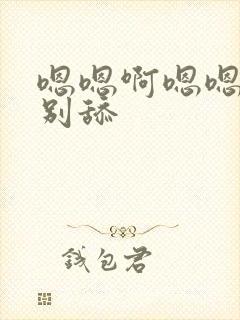 嗯嗯啊嗯嗯
别舔
钱包君